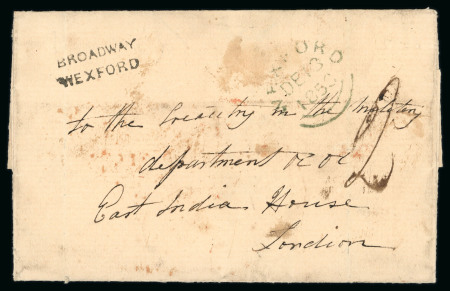 BROADWAY
WEXFORD
WEXFORD
DE 13
2
to the Secretary in the Military
department &c &c
East India House
London